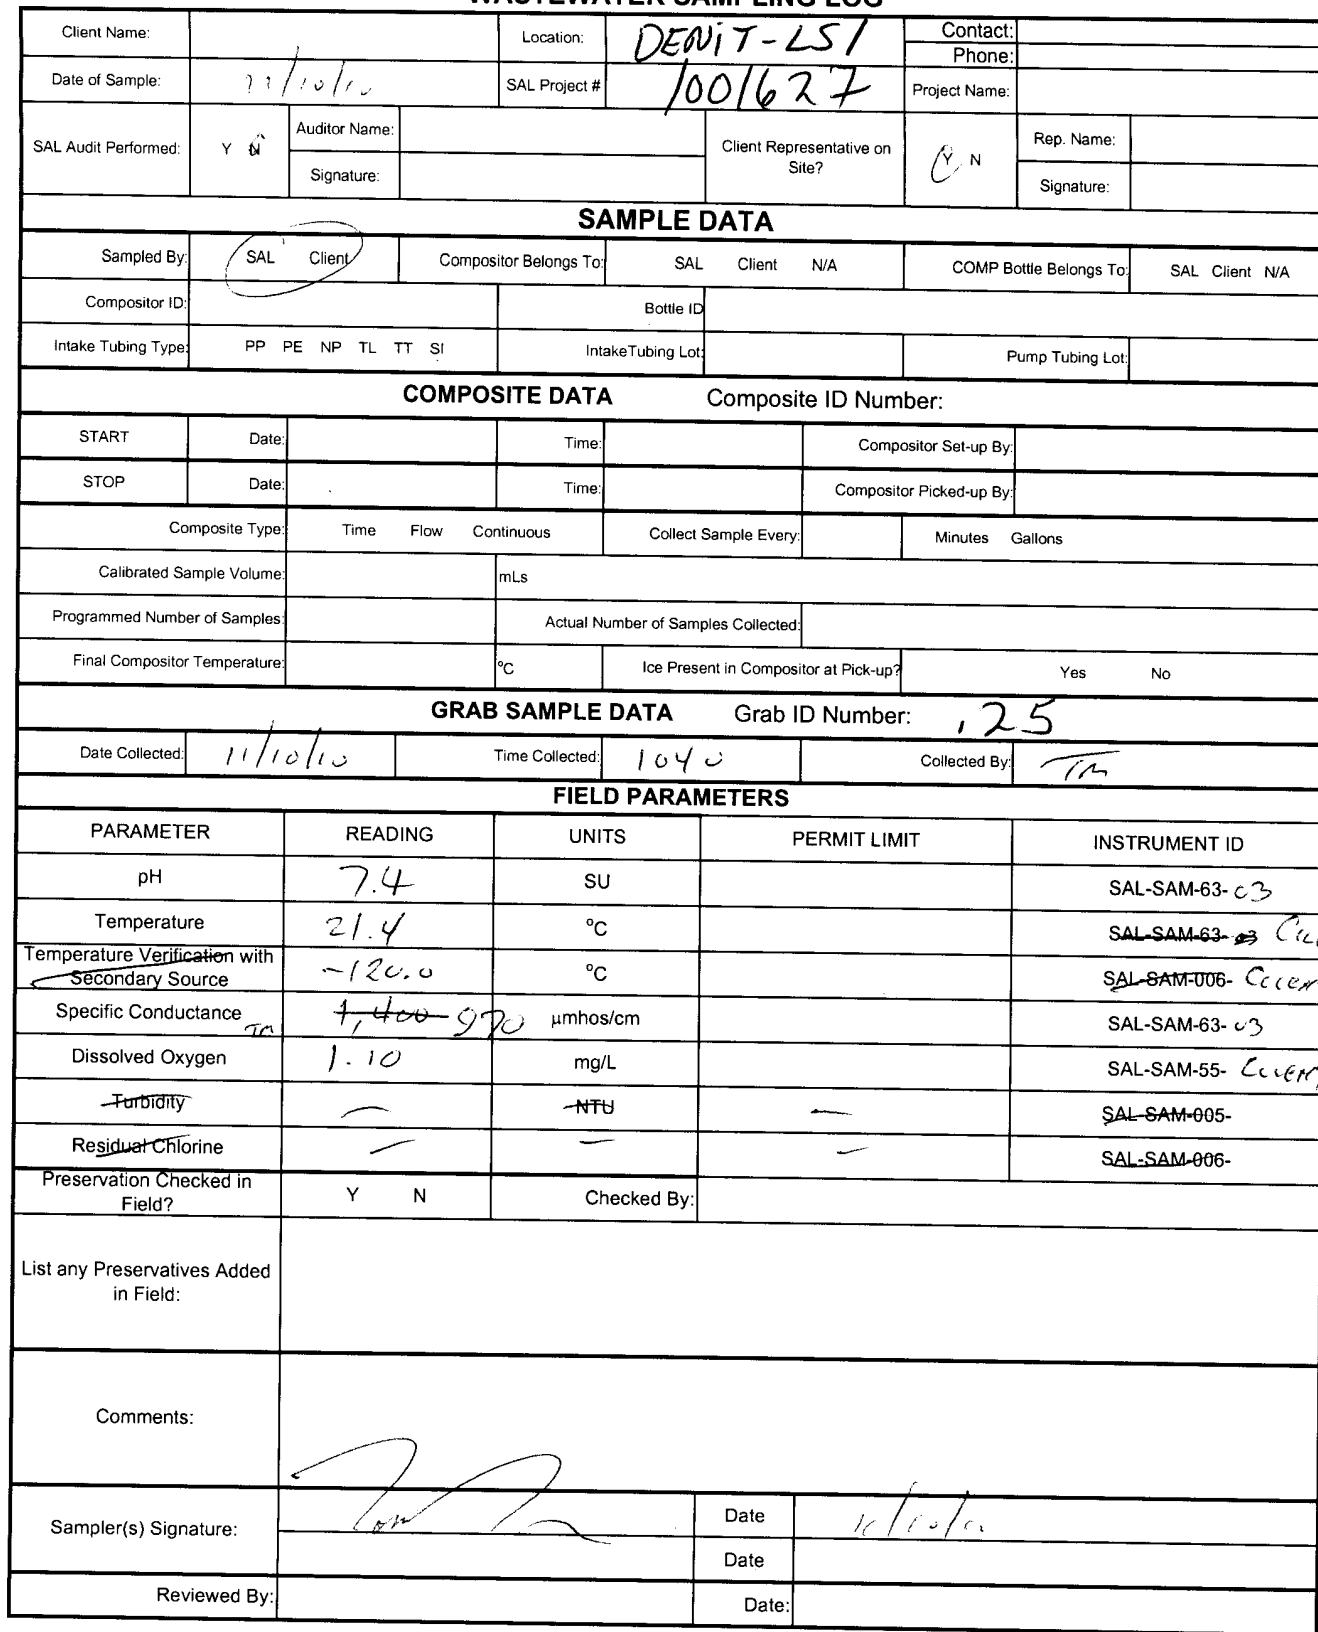 WASTEWATER SAMPLING LOG
Client Name: Location: DENIT-LS1 Contact:
Phone:
Date of Sample: 11/10/10 SAL Project # 1001627 Project Name:
SAL Audit Performed: Y N Auditor Name: Client Representative on Site? Y N Rep. Name:
Signature: Signature:
SAMPLE DATA
Sampled By: SAL Client Compositor Belongs To: SAL Client N/A COMP Bottle Belongs To: SAL Client N/A
Compositor ID: Bottle ID
Intake Tubing Type: PP PE NP TL TT SI IntakeTubing Lot: Pump Tubing Lot:
COMPOSITE DATA Composite ID Number:
START Date: Time: Compositor Set-up By:
STOP Date: Time: Compositor Picked-up By:
Composite Type: Time Flow Continuous Collect Sample Every: Minutes Gallons
Calibrated Sample Volume: mLs
Programmed Number of Samples: Actual Number of Samples Collected:
Final Compositor Temperature: °C Ice Present in Compositor at Pick-up? Yes No
GRAB SAMPLE DATA Grab ID Number: .25
Date Collected: 11/10/10 Time Collected: 1040 Collected By: TM
FIELD PARAMETERS
PARAMETER READING UNITS PERMIT LIMIT INSTRUMENT ID
pH 7.4 SU SAL-SAM-63-03
Temperature 21.4 °C SAL-SAM-63-03
Temperature Verification with
Secondary Source -120.0 °C SAL-SAM-006-
Specific Conductance TM 1,400 970 µmhos/cm SAL-SAM-63-03
Dissolved Oxygen 1.10 mg/L SAL-SAM-55-
Turbidity — NTU — SAL-SAM-005-
Residual Chlorine — — — SAL-SAM-006-
Preservation Checked in
Field? Y N Checked By:
List any Preservatives Added
in Field:
Comments:
Sampler(s) Signature: Date 11/10/10
Date
Reviewed By: Date: